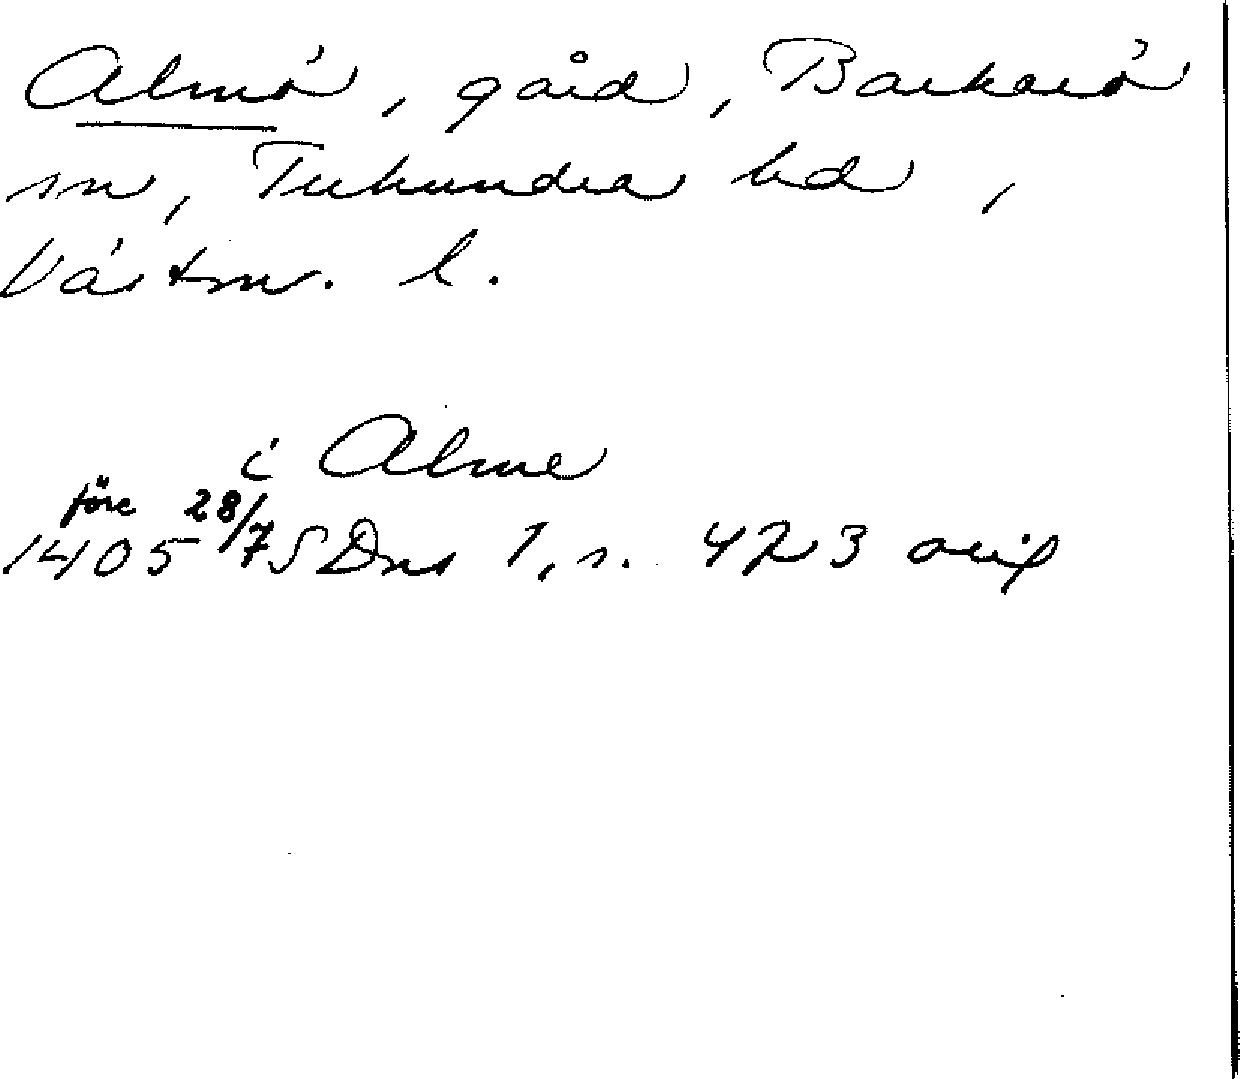 Almö, gård, Barkarö
sn, Tuhundra hd,
Västm. l.
i Alme
före 28/7
1405 SDns 1, s. 423 orig